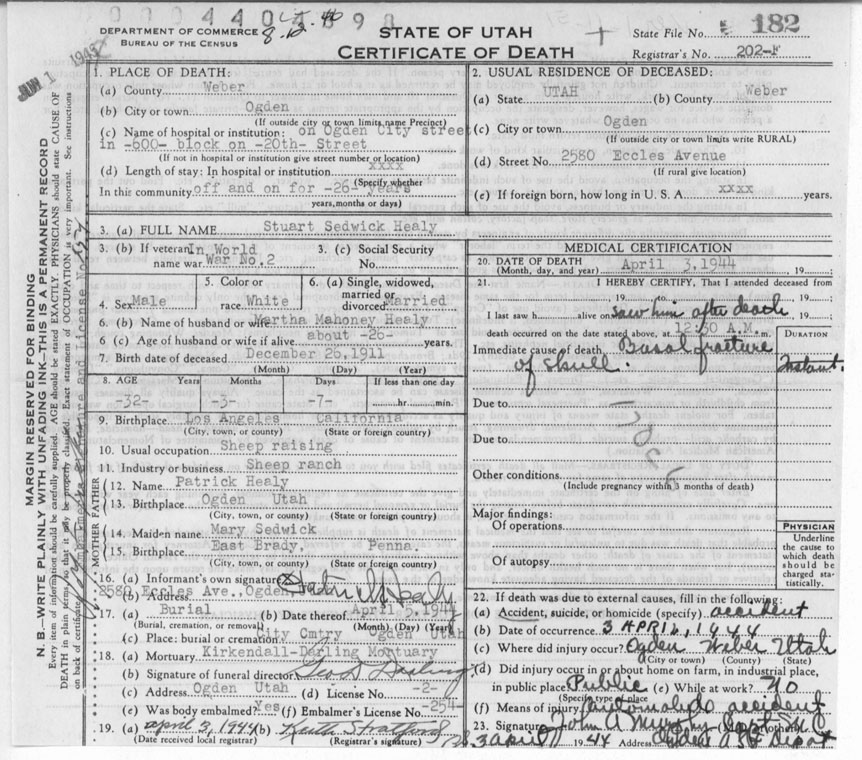 DEPARTMENT OF COMMERCE
BUREAU OF THE CENSUS
STATE OF UTAH
CERTIFICATE OF DEATH
State File No. 182
Registrar's No. 202-F
JUN 1 1945
MARGIN RESERVED FOR BINDING
N. B.—WRITE PLAINLY WITH UNFADING INK—THIS IS A PERMANENT RECORD
Every item of information should be carefully supplied. AGE should be stated EXACTLY. PHYSICIANS should state CAUSE OF
DEATH in plain terms so that it may be properly classified. Exact statement of OCCUPATION is very important. See instructions
on back of certificate.
1. PLACE OF DEATH:
(a) County Weber
(b) City or town Ogden
(If outside city or town limits, name Precinct)
(c) Name of hospital or institution: on Ogden City street
in -600- block on -20th- Street
(If not in hospital or institution give street number or location)
(d) Length of stay: In hospital or institution xxxx
(Specify whether
In this community off and on for -26- years
years, months or days)
2. USUAL RESIDENCE OF DECEASED:
(a) State UTAH (b) County Weber
(c) City or town Ogden
(If outside city or town limits write RURAL)
(d) Street No. 2580 Eccles Avenue
(If rural give location)
(e) If foreign born, how long in U. S. A xxxx years.
3. (a) FULL NAME Stuart Sedwick Healy
3. (b) If veteran In World
name war War No.2
3. (c) Social Security
No.
4. Sex Male
5. Color or
race White
6. (a) Single, widowed,
married or
divorced Married
6. (b) Name of husband or wife Martha Mahoney Healy
6. (c) Age of husband or wife if alive about -26- years.
7. Birth date of deceased December 26,1911
(Month) (Day) (Year)
8. AGE Years Months Days If less than one day
-32- -3- -7- hr. min.
9. Birthplace Los Angeles California
(City, town, or county) (State or foreign country)
10. Usual occupation Sheep raising
11. Industry or business Sheep ranch
FATHER
12. Name Patrick Healy
13. Birthplace Ogden Utah
(City, town, or county) (State or foreign country)
MOTHER
14. Maiden name Mary Sedwick
15. Birthplace East Brady, Penna.
(City, town, or county) (State or foreign country)
16. (a) Informant's own signature Patrick Healy
(b) Address 2580 Eccles Ave., Ogden
17. (a) Burial (b) Date thereof April 5,1944
(Burial, cremation, or removal) (Month) (Day) (Year)
(c) Place: burial or cremation City Cmtry Ogden Utah
18. (a) Mortuary Kirkendall-Darling Mortuary
(b) Signature of funeral director Geo S Darling
(c) Address Ogden Utah (d) License No. -2-
(e) Was body embalmed? Yes (f) Embalmer's License No. -254-
19. (a) april 3, 1944 (b) Keith Stratford
(Date received local registrar) (Registrar's signature)
MEDICAL CERTIFICATION
20. DATE OF DEATH April 3,1944
(Month, day, and year) 19
21. I HEREBY CERTIFY, That I attended deceased from
19 to 19
I last saw h alive on saw him after death 19
death occurred on the date stated above, at 12:30 A.M. m.
DURATION
Immediate cause of death Basal fracture
of skull. Instant.
Due to
Due to
Other conditions
(Include pregnancy within 3 months of death)
Major findings:
Of operations
Of autopsy
PHYSICIAN
Underline
the cause to
which death
should be
charged sta-
tistically.
22. If death was due to external causes, fill in the following:
(a) Accident, suicide, or homicide (specify) accident
(b) Date of occurrence 3 APRIL, 1944
(c) Where did injury occur? Ogden Weber Utah
(City or town) (County) (State)
(d) Did injury occur in or about home on farm, in industrial place,
in public place Public (e) While at work? no
(Specify type of place
(f) Means of injury automobile accident
23. Signature John A Murphy Capt MC
3 april 1944 Address Ogden ASF depot